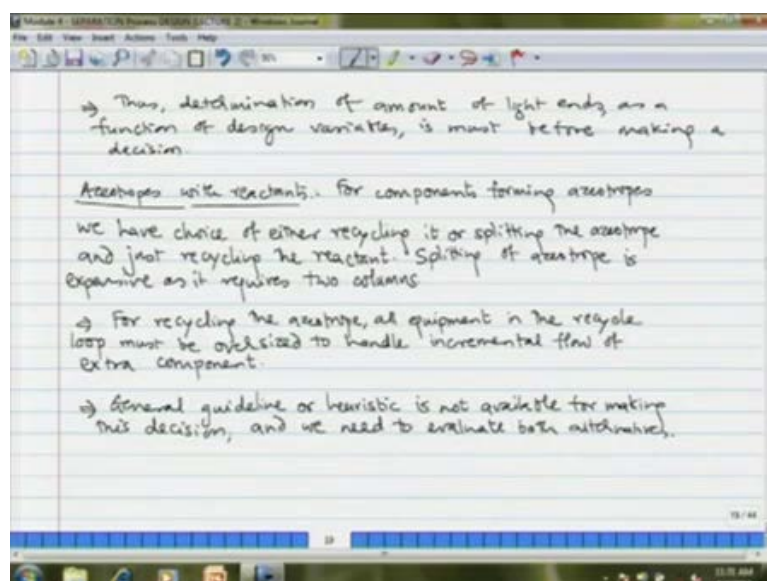 Module 4 - SEPARATION Process DESIGN (LECTURE 2) - Windows Journal
File Edit View Insert Actions Tools Help
⇒ Thus, determination of amount of light ends, as a
function of design variables, is must before making a
decision.
Azeotropes with reactants. For components forming azeotropes
we have choice of either recycling it or splitting the azeotrope
and just recycling the reactant. Splitting of azeotrope is
expensive as it requires two columns
⇒ For recycling the azeotrope, all equipment in the recycle
loop must be oversized to handle incremental flow of
extra component.
⇒ General guideline or heuristic is not available for making
this decision, and we need to evaluate both alternatives.
19/44
19